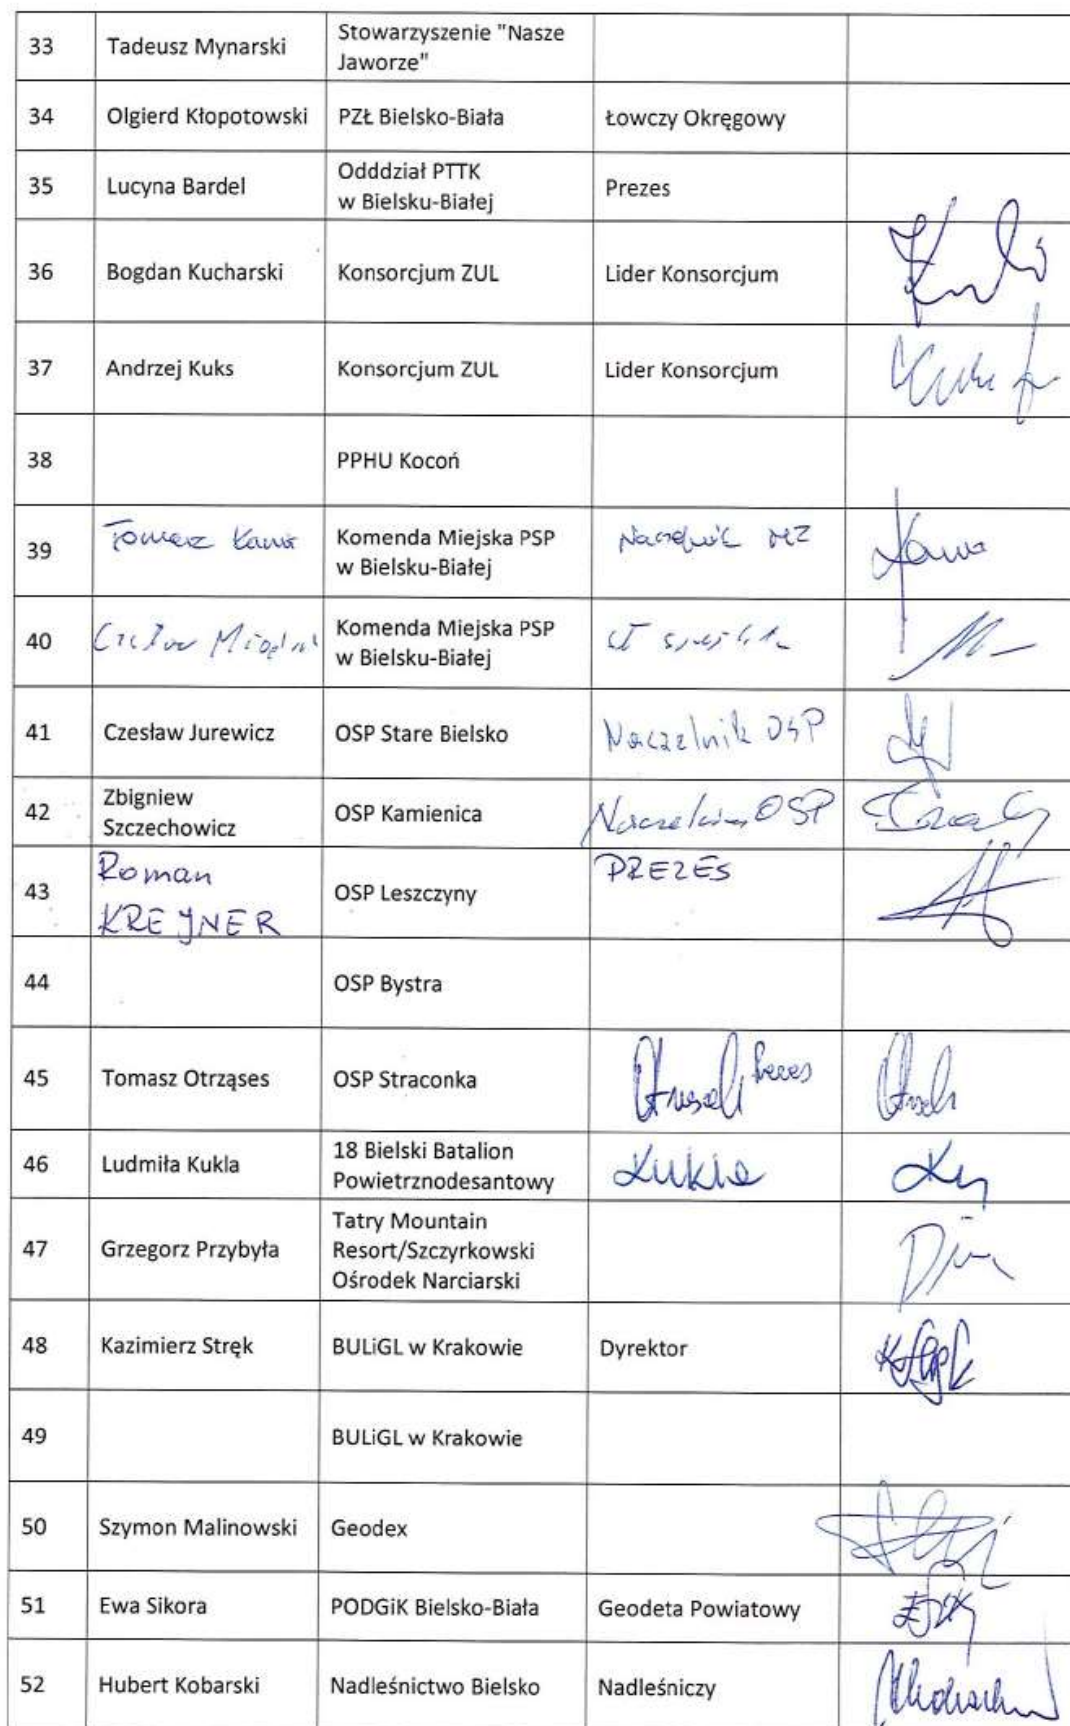 33 Tadeusz Mynarski Stowarzyszenie "Nasze
Jaworze"
34 Olgierd Kłopotowski PZŁ Bielsko-Biała Łowczy Okręgowy
35 Lucyna Bardel Odddział PTTK
w Bielsku-Białej Prezes
36 Bogdan Kucharski Konsorcjum ZUL Lider Konsorcjum
37 Andrzej Kuks Konsorcjum ZUL Lider Konsorcjum
38 PPHU Kocoń
39 Tomasz Komenda Miejska PSP
w Bielsku-Białej Naczelnik MZ
40 Komenda Miejska PSP
w Bielsku-Białej
41 Czesław Jurewicz OSP Stare Bielsko Naczelnik OSP
42 Zbigniew
Szczechowicz OSP Kamienica OSP
43 Roman
KREJNER OSP Leszczyny PREZES
44 OSP Bystra
45 Tomasz Otrząses OSP Straconka Prezes
46 Ludmiła Kukla 18 Bielski Batalion
Powietrznodesantowy Kukla
47 Grzegorz Przybyła Tatry Mountain
Resort/Szczyrkowski
Ośrodek Narciarski
48 Kazimierz Stręk BULiGL w Krakowie Dyrektor
49 BULiGL w Krakowie
50 Szymon Malinowski Geodex
51 Ewa Sikora PODGiK Bielsko-Biała Geodeta Powiatowy
52 Hubert Kobarski Nadleśnictwo Bielsko Nadleśniczy